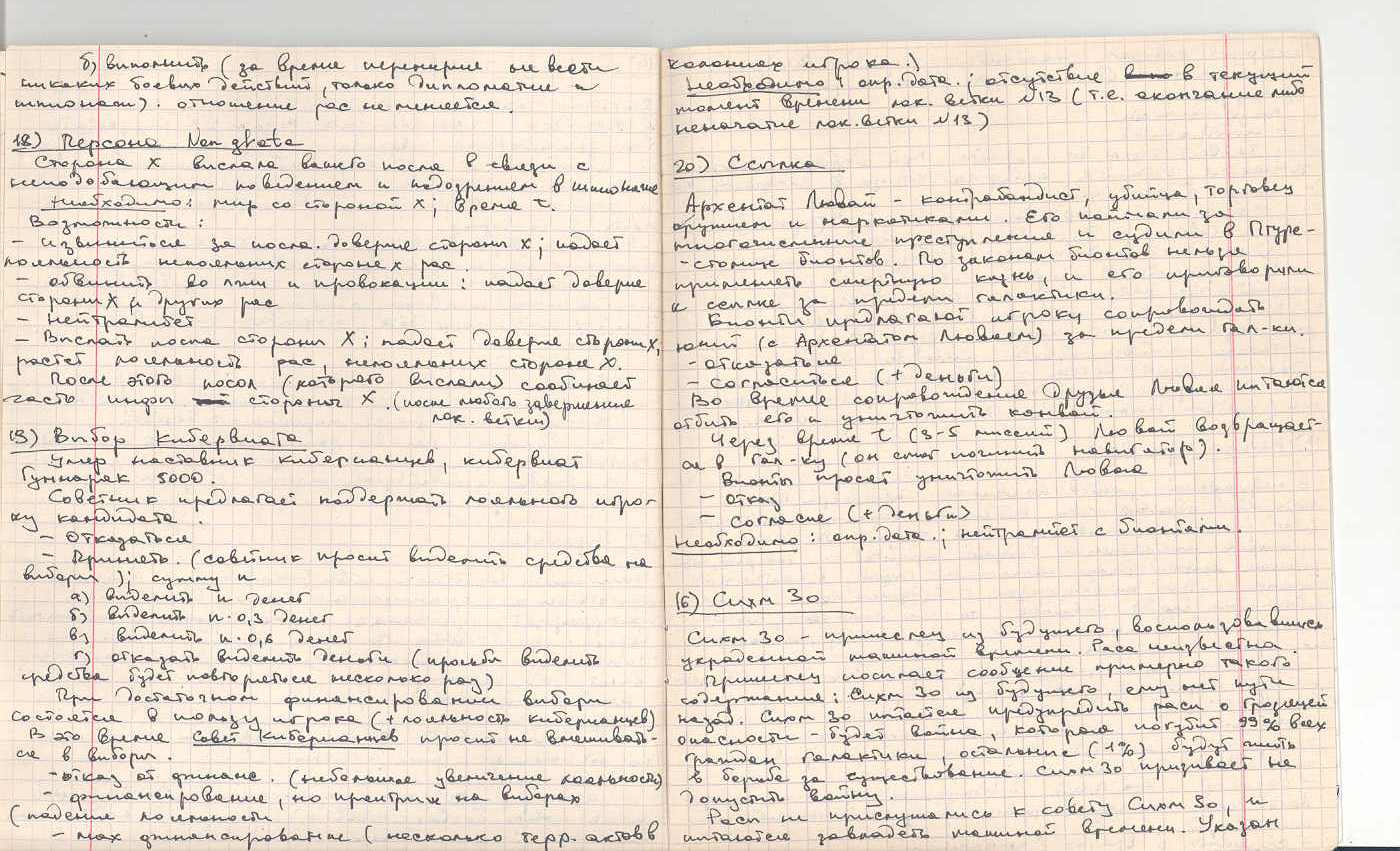 б) выполнить (за время перемирие не вести
никаких боевых действий, только дипломатие и
шпионаж). отношение рас не меняется.
18) Персона Non grata
Сторона X выслала вашего посла в связи с
неподобающим поведением и подозрением в шпионаже
Необходимо: мир со стороной X; время τ.
Возможности:
- извиниться за посла. доверие стороны X; падает
лояльность нелояльных стороне X рас.
- обвинить во лжи и провокации: падает доверие
стороны X и других рас
- нейтралитет
- Выслать посла стороны X; падает доверие стороны X,
растет лояльность рас, нелояльных стороне X.
После этого посол (которого выслали) сообщает
часть инфы стороны X. (после любого завершения
лок. ветки)
19) Выбор Кибервиата
Умер наставник киберианцев, кибервиат
Гуннарак 5000.
Советник предлагает поддержать лояльного игро-
ку кандидата.
- Отказаться
- Принять. (советник просит выделить средства на
выборы); сумму n
а) выделить n денег
б) выделить n·0,3 денег
в) выделить n·0,6 денег
г) отказать выделить деньги (просьба выделить
средства будет повторяться несколько раз)
При достаточном финансировании выборы
состоятся в пользу игрока (+ лояльность киберианцев)
В это время Совет Киберианцев просит не вмешивать-
ся в выборы.
- отказ от финанс. (небольшое увеличение лояльности)
- финансирование, но проигрыш на выборах
(падение лояльности
- max финансирование (несколько терр. актов в
колониях игрока.)
Необходимо: опр. дата.; отсутствие в текущий
момент времени лок. ветки N13 (т.е. окончание либо
неначатие лок. ветки N13)
20) Ссылка
Архентат Лювай - контрабандист, убийца, торговец
оружием и наркотиками. Его поймали за
многочисленные преступления и судили в Птуре-
- столице бионтов. По законам бионтов нельзя
применять смертную казнь, и его приговорили
к ссылке за пределы галактики.
Бионты предлагают игроку сопровождать
конвой (с Архентатом Люваем) за пределы гал-ки.
- отказаться
- Согласиться (+ деньги)
Во время сопровождения друзья Лювая пытаются
отбить его и уничтожить конвой.
Через время τ (3-5 миссий) Лювай возвращает-
ся в гал-ку (он смог починить навигатор).
Бионты просят уничтожить Лювая
- отказ
- согласие (+ деньги)
Необходимо: опр. дата.; нейтралитет с бионтами.
16) Сихм Зо
Сихм Зо - пришелец из будущего, воспользовавшись
украденной машиной времени. Раса неизвестна.
Пришелец посылает сообщение примерно такого
содержание: Сихм Зо из будущего, ему нет пути
назад. Сихм Зо пытается предупредить расы о грозящей
опасности - будет война, которая погубит 99% всех
граждан галактики, остальные (1%) будут жить
в борьбе за существование. Сихм Зо призывает не
допустить войну.
Расы не прислушались к совету Сихм Зо, и
пытаются завладеть машиной времени. Указан